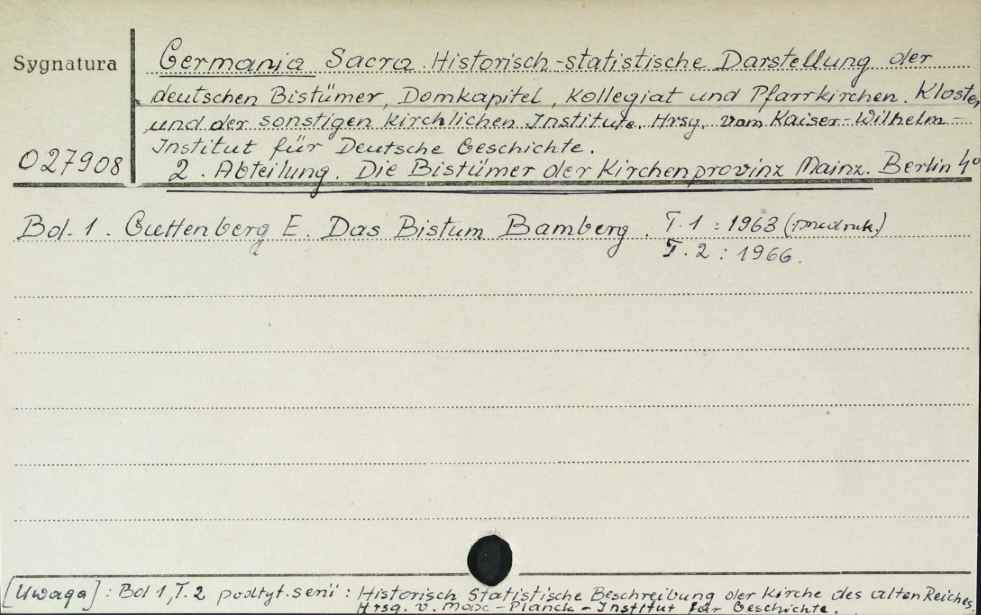 Sygnatura
Germania Sacra Historisch-statistische Darstellung der
deutschen Bistümer, Domkapitel, Kollegiat und Pfarrkirchen. Kloster
und der sonstigen kirchlichen Institute. Hrsg. vom Kaiser-Wilhelm-
Institut für Deutsche Geschichte.
027908
2. Abteilung. Die Bistümer der Kirchenprovinz Mainz. Berlin 4°
Bd. 1. Guttenberg E. Das Bistum Bamberg. T.1: 1963 (przedruk.)
T.2: 1966.
[Uwaga]: Bd 1, T.2 podtyt. serii: Historisch Statistische Beschreibung der Kirche des alten Reiches,
Hrsg. v. Max-Planck-Institut für Geschichte.